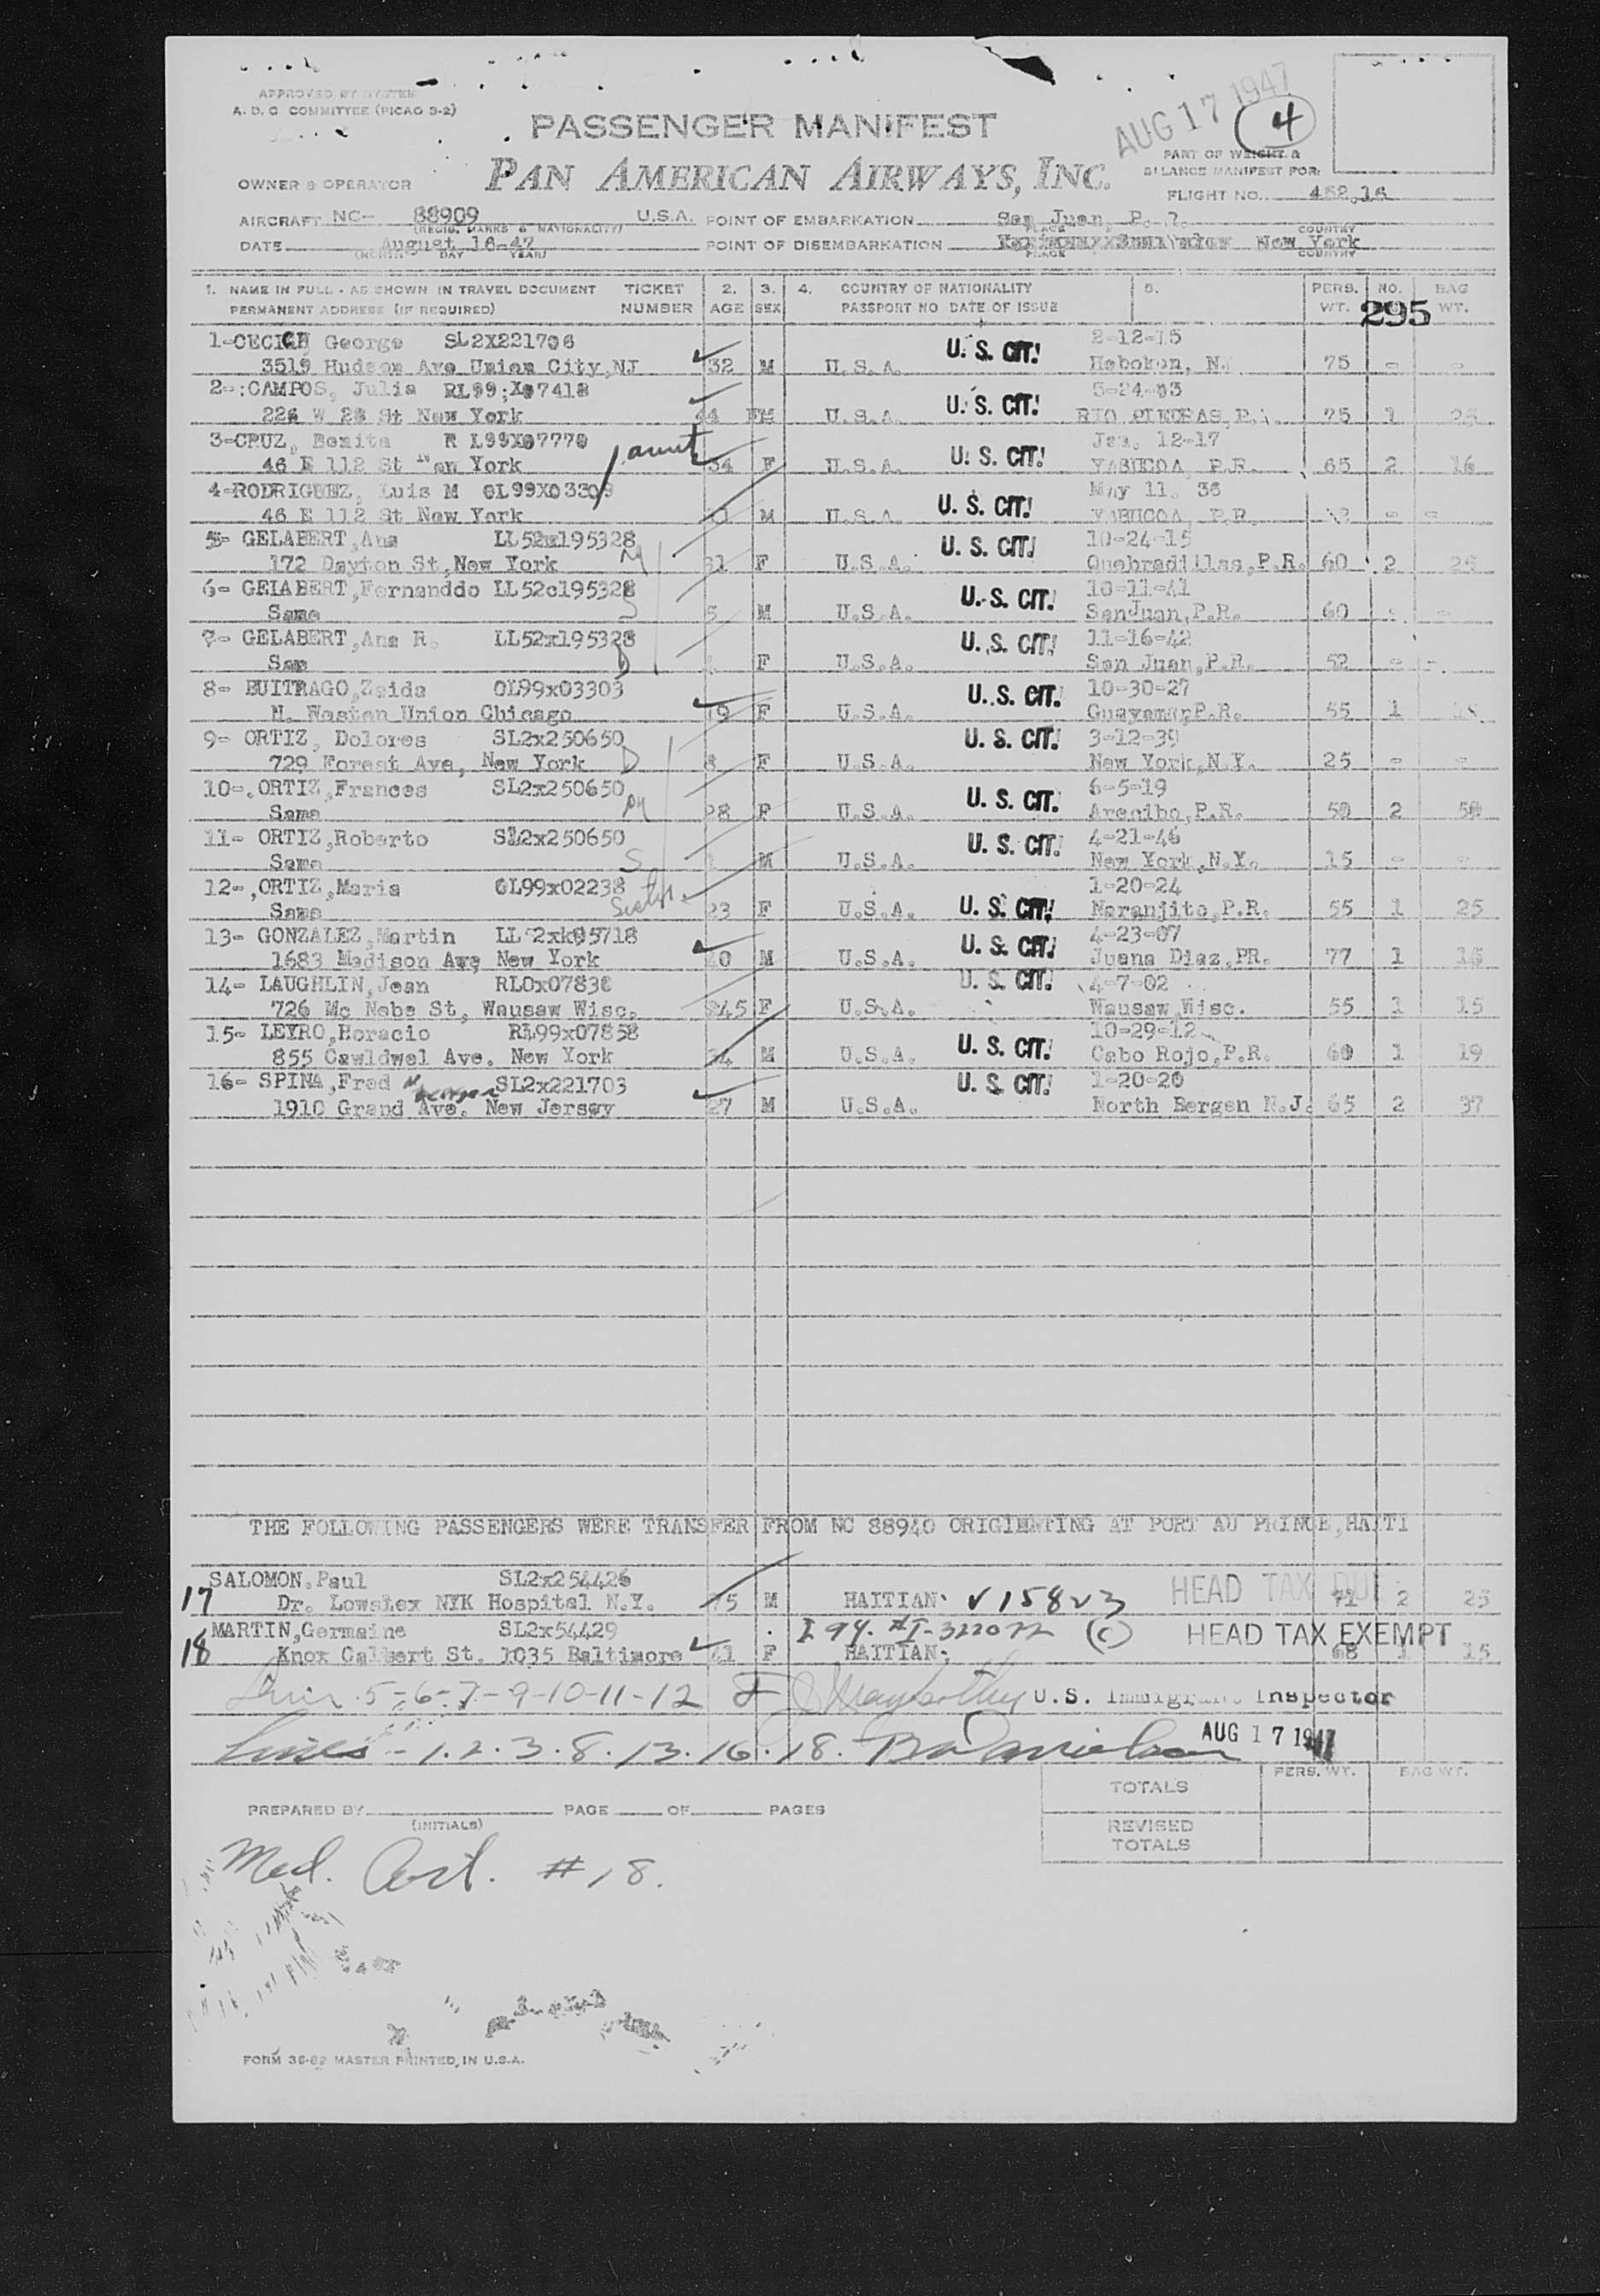 APPROVED BY SYSTEM
A. D. C COMMITTEE (PICAO 3-2)
PASSENGER MANIFEST
AUG 17 1947
4
PART OF WEIGHT &
BALANCE MANIFEST FOR:
OWNER & OPERATOR
PAN AMERICAN AIRWAYS, INC.
FLIGHT NO. 452.16
AIRCRAFT NC- 88909 U.S.A. POINT OF EMBARKATION San Juan P.
(REGIS. MARKS & NATIONALITY) PLACE COUNTRY
DATE August 16-47 POINT OF DISEMBARKATION New York
(MONTH DAY YEAR) PLACE COUNTRY
1. NAME IN FULL - AS SHOWN IN TRAVEL DOCUMENT TICKET 2. 3. 4. COUNTRY OF NATIONALITY 5. PERS. NO. BAG
PERMANENT ADDRESS (IF REQUIRED) NUMBER AGE SEX PASSPORT NO DATE OF ISSUE WT. WT.
295
1-CECICH George SL2X221706 U. S. CIT. 2-12-15
3519 Hudson Ave Union City,NJ 32 M U.S.A. Hoboken, N. 75 - -
2-:CAMPOS, Julia RL99:X07418 U. S. CIT. 5-24-03
226 W 28 St New York 44 M U.S.A. RIO PIEDRAS,P. 75 1 25
3-CRUZ, Benita R L99X07770 aunt U. S. CIT. Jan. 12-17
46 E 112 St New York 34 F U.S.A. YABUCOA, P.R. 65 2 16
4-RODRIGUEZ, Luis M OL99X03309 U. S. CIT. May 11. 36
46 E 112 St New York M U.S.A. YABUCOA, P.R. - -
5- GELABERT,Ana LL52x195328 M U. S. CIT. 10-24-15
172 Dayton St,New York 31 F U.S.A. Quebradillas,P.R. 60 2 25
6- GELABERT,Fernanddo LL52c195328 S U. S. CIT. 10-11-41
Same 5 M U.S.A. SanJuan,P.R. 60 - -
7- GELABERT,Ana R. LL52x195328 D U. S. CIT. 11-16-42
Sam F U.S.A. San Juan,P.R. 52 - -
8- BUITRAGO,Zaida OL99x03303 U. S. CIT. 10-30-27
N. Westen Union Chicago 19 F U.S.A. Guayama,P.R. 55 1
9- ORTIZ, Dolores SL2x250650 U. S. CIT. 3-12-39
729 Forest Ave, New York D 8 F U.S.A. New York,N.Y. 25 - -
10-.ORTIZ,Frances SL2x250650 U. S. CIT. 6-5-19
Same M 28 F U.S.A. Arecibo,P.R. 50 2 50
11- ORTIZ,Roberto SL2x250650 U. S. CIT. 4-21-46
Same S 1 M U.S.A. New York,N.Y. 15 - -
12-,ORTIZ,Maria OL99x02238 1-20-24
Same Sister 23 F U.S.A. U. S. CIT. Naranjito,P.R. 55 1 25
13- GONZALEZ,Martin LL 2xk05718 U. S. CIT. 4-23-07
1683 Madison Ave New York 40 M U.S.A. Juana Diaz,PR. 77 1 15
14- LAUGHLIN,Jean RLOx07838 U. S. CIT. 4-7-02
726 Mc Nabe St, Wausaw Wisc. 45 F U.S.A. Wausaw,Wisc. 55 1 15
15- LEYRO,Horacio RL99x07858 U. S. CIT. 10-29-12
855 Cawldwel Ave. New York 34 M U.S.A. Cabo Rojo,P.R. 60 1 19
16- SPINA,Fred SL2x221703 U. S. CIT. 1-20-20
1910 Grand Ave. New Jersey 27 M U.S.A. North Bergen N.J. 65 2 37
THE FOLLOWING PASSENGERS WERE TRANSFER FROM NC 88940 ORIGINTING AT PORT AU PRINCE,HAITI
SALOMON.Paul SL2x254426 HEAD TAX DUE
17 Dr. Lowslex NYK Hospital N.Y. 75 M HAITIAN. V15823 71 2 25
MARTIN,Germaine SL2x54429 I 94. #I-322022 (C) HEAD TAX EXEMPT
18 Knox Calbert St. 1035 Baltimore 41 F HAITIAN. 68 1 15
5-6-7-9-10-11-12 U.S. Immigrant Inspector
Lines - 1.2.3.8.13.16.18. AUG 17 1947
TOTALS PERS. WT. BAG WT.
PREPARED BY PAGE OF PAGES
(INITIALS)
REVISED
TOTALS
Med. Cert. #18.
FORM 36-82 MASTER PRINTED, IN U.S.A.